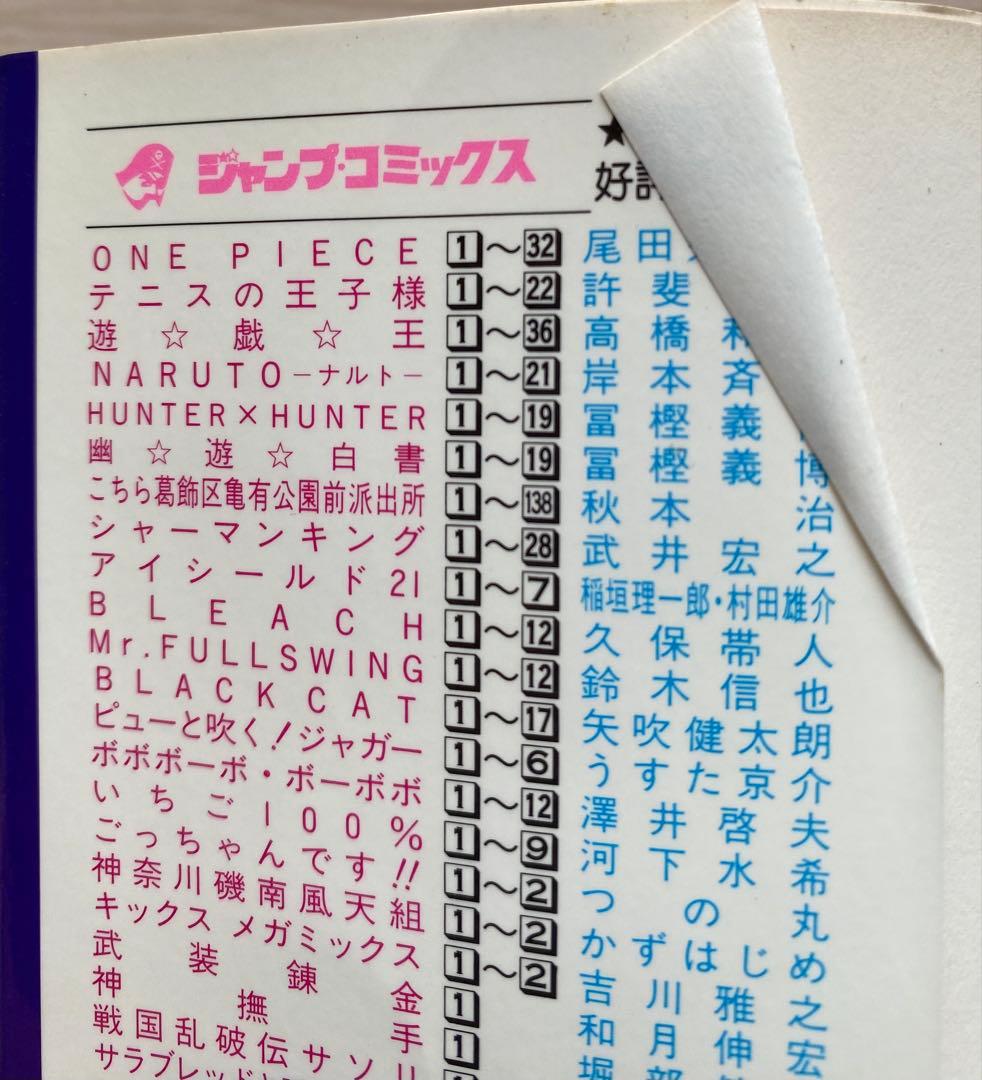 ジャンプ・コミックス
★
好評
ONE PIECE 1～32 尾田
テニスの王子様 1～22 許斐
遊☆戯☆王 1～36 高橋和
NARUTO－ナルト－ 1～21 岸本斉
HUNTER×HUNTER 1～19 冨樫義
幽☆遊☆白書 1～19 冨樫義博
こちら葛飾区亀有公園前派出所 1～138 秋本治
シャーマンキング 1～28 武井宏之
アイシールド21 1～7 稲垣理一郎・村田雄介
BLEACH 1～12 久保帯人
Mr.FULLSWING 1～12 鈴木信也
BLACK CAT 1～17 矢吹健太朗
ピューと吹く!ジャガー 1～6 うすた京介
ボボボーボ・ボーボボ 1～12 澤井啓夫
いちご100% 1～9 河下水希
ごっちゃんです!! 1～2 つの丸
神奈川磯南風天組 1～2 かずはじめ
キックス メガミックス 1～2 吉川雅之
武装錬金 1 和月伸宏
神撫手 1 堀部
戦国乱破伝サソリ
サラブレッドと